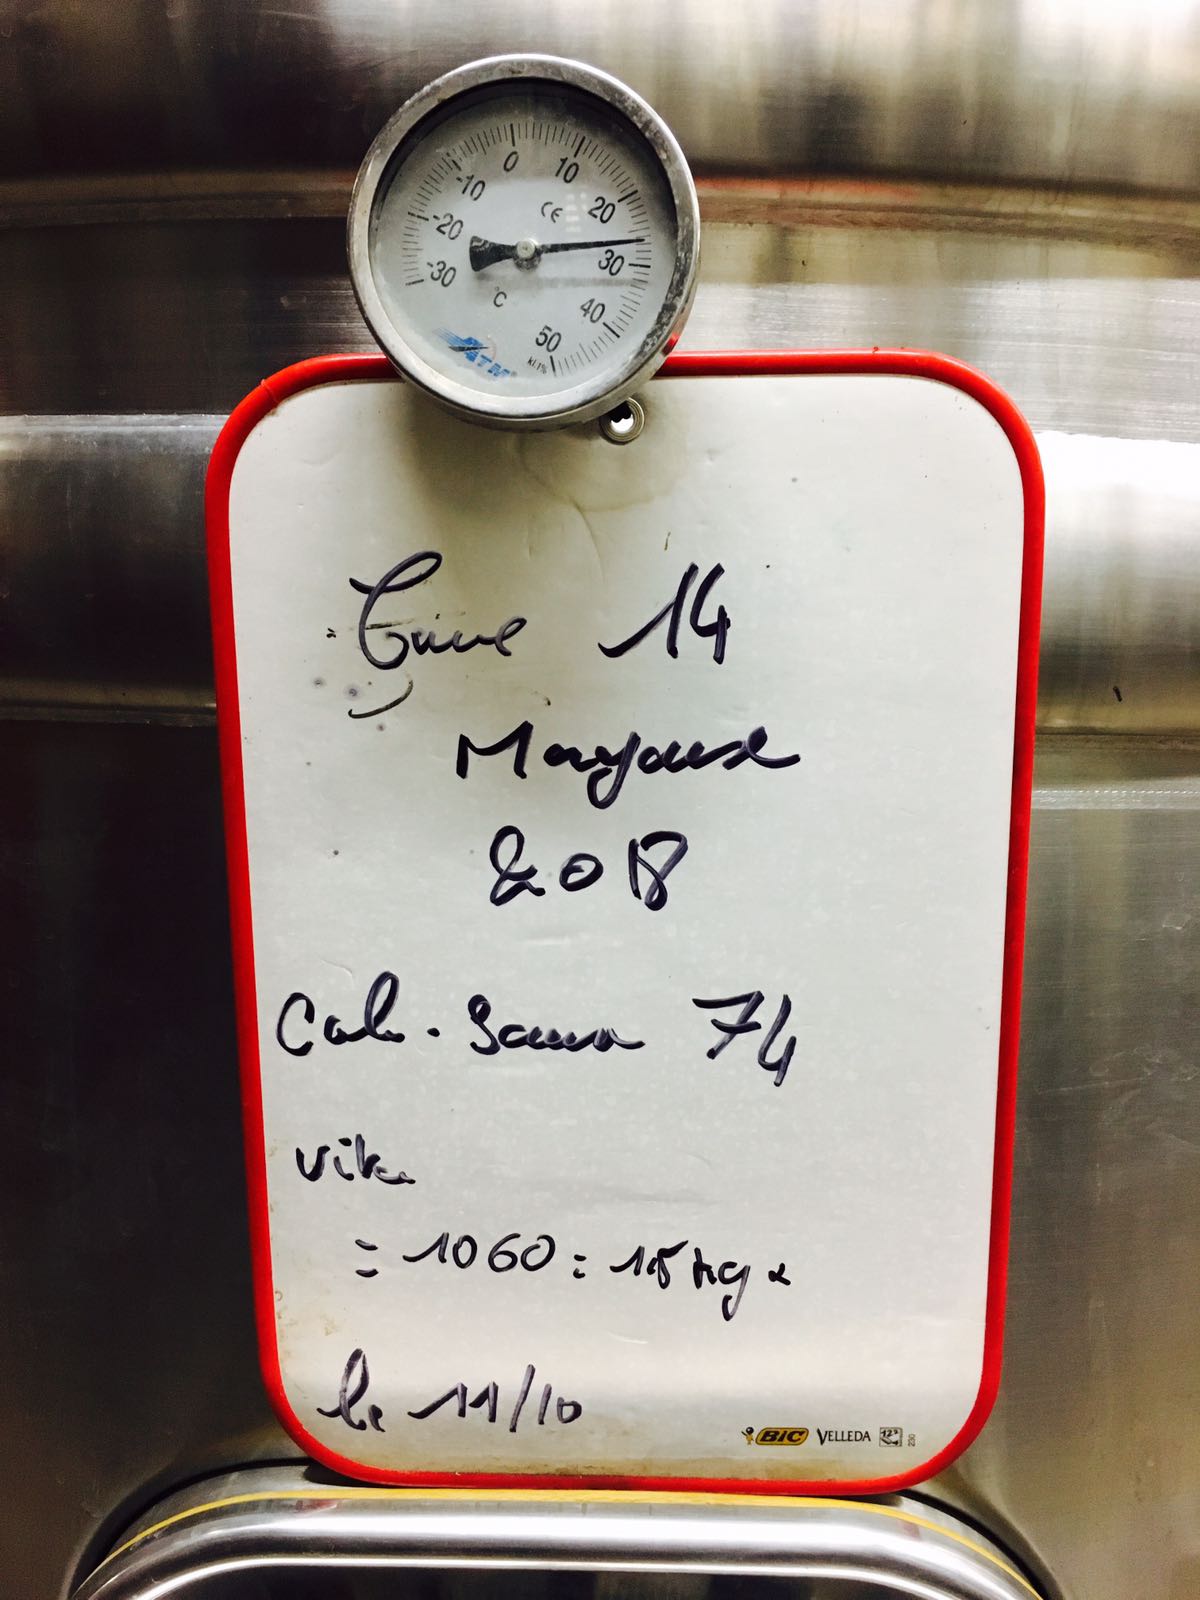 -30 -20 -10 0 10 20 30 40 50
CE
°C
ATM®
kl.1%
Cuve 14
Margaux
2018
Cab. Sauv 74
= 1060 = 15 kg
le 11/10
BIC VELLEDA 123 230